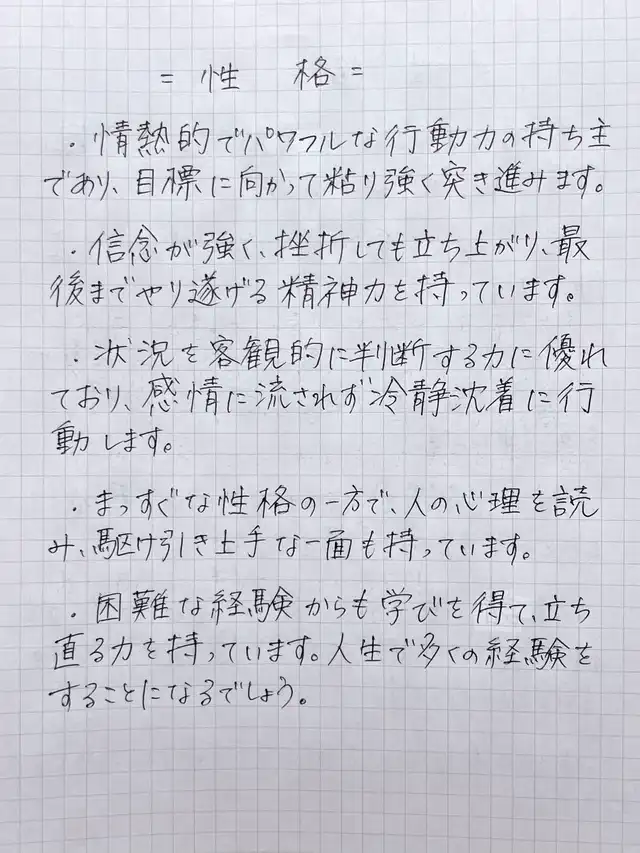 = 性 格 =
・情熱的でパワフルな行動力の持ち主
であり、目標に向かって粘り強く突き進みます。
・信念が強く、挫折しても立ち上がり、最
後までやり遂げる精神力を持っています。
・状況を客観的に判断する力に優れ
ており、感情に流されず冷静沈着に行
動します。
・まっすぐな性格の一方で、人の心理を読
み、駆け引き上手な一面も持っています。
・困難な経験からも学びを得て、立ち
直る力を持っています。人生で多くの経験を
することになるでしょう。